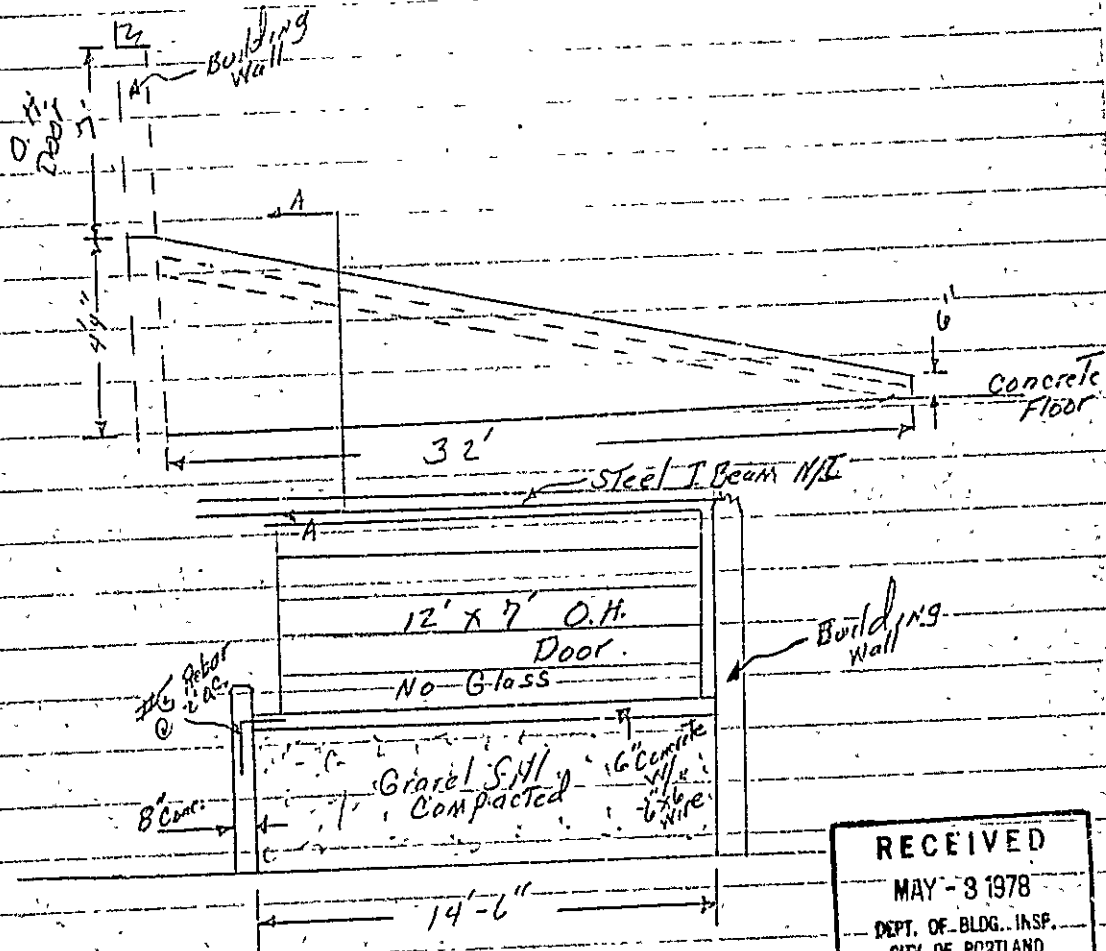 Building
Wall
O.H.
Door
7'
A
4'4"
6"
Concrete
Floor
32'
Steel I Beam N/I
A
12' x 7' O.H.
Door.
No Glass
Building
Wall
Rebar
@ 2' O.C.
8" Conc.
Gravel Fill
Compacted
6" Concrete
W/
6x6
Wire
14'-6"
RECEIVED
MAY - 3 1978
DEPT. OF BLDG. INSP.
CITY OF PORTLAND